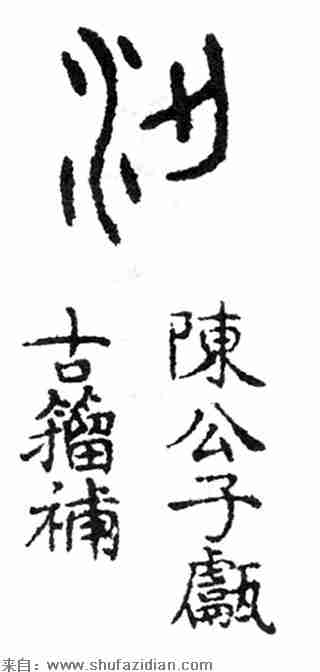 陳公子甗
古籀補
来自：www.shufazidian.com